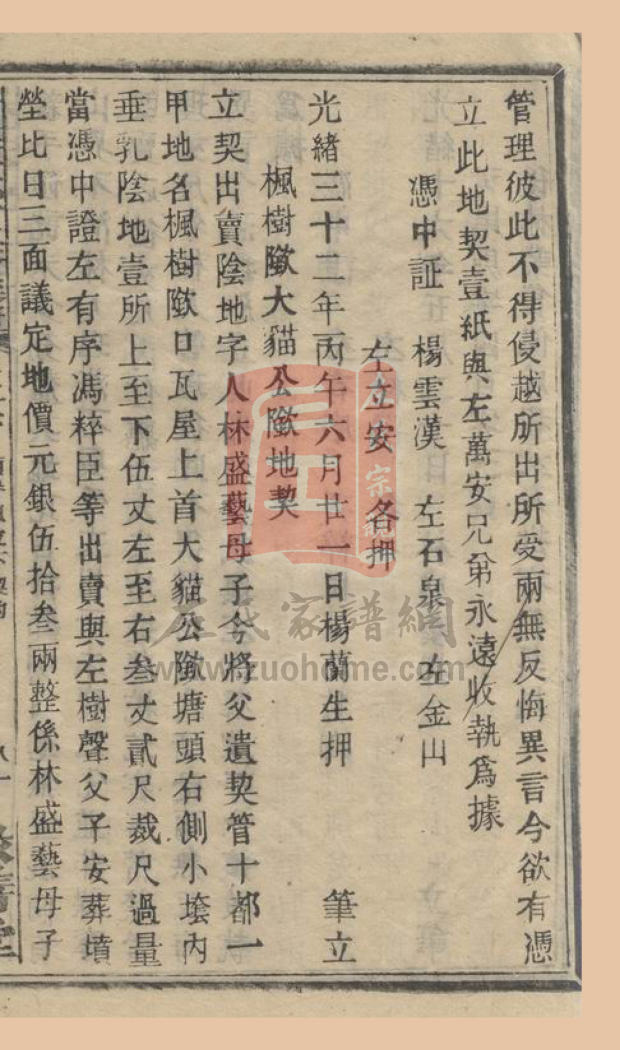 管理彼此不得侵越所出所受兩無反悔異言今欲有憑
立此地契壹紙與左萬安兄弟永遠收執爲據
憑中証 楊雲漢 左石泉 左金山
左立安 各押
光緒三十二年丙午六月廿一日楊蘭生押 筆立
楓樹㘭大貓公㘭地契
立契出賣陰地字人林盛藝母子今將父遺契管十都一
甲地名楓樹㘭口瓦屋上首大貓公㘭塘頭右側小墖內
垂乳陰地壹所上至下伍丈左至右叁丈貳尺裁尺過量
當憑中證左有序馮粹臣等出賣與左樹聲父子安葬墳
塋比日三面議定地價元銀伍拾叁兩整係林盛藝母子
左氏家譜網
www.zuohome.com